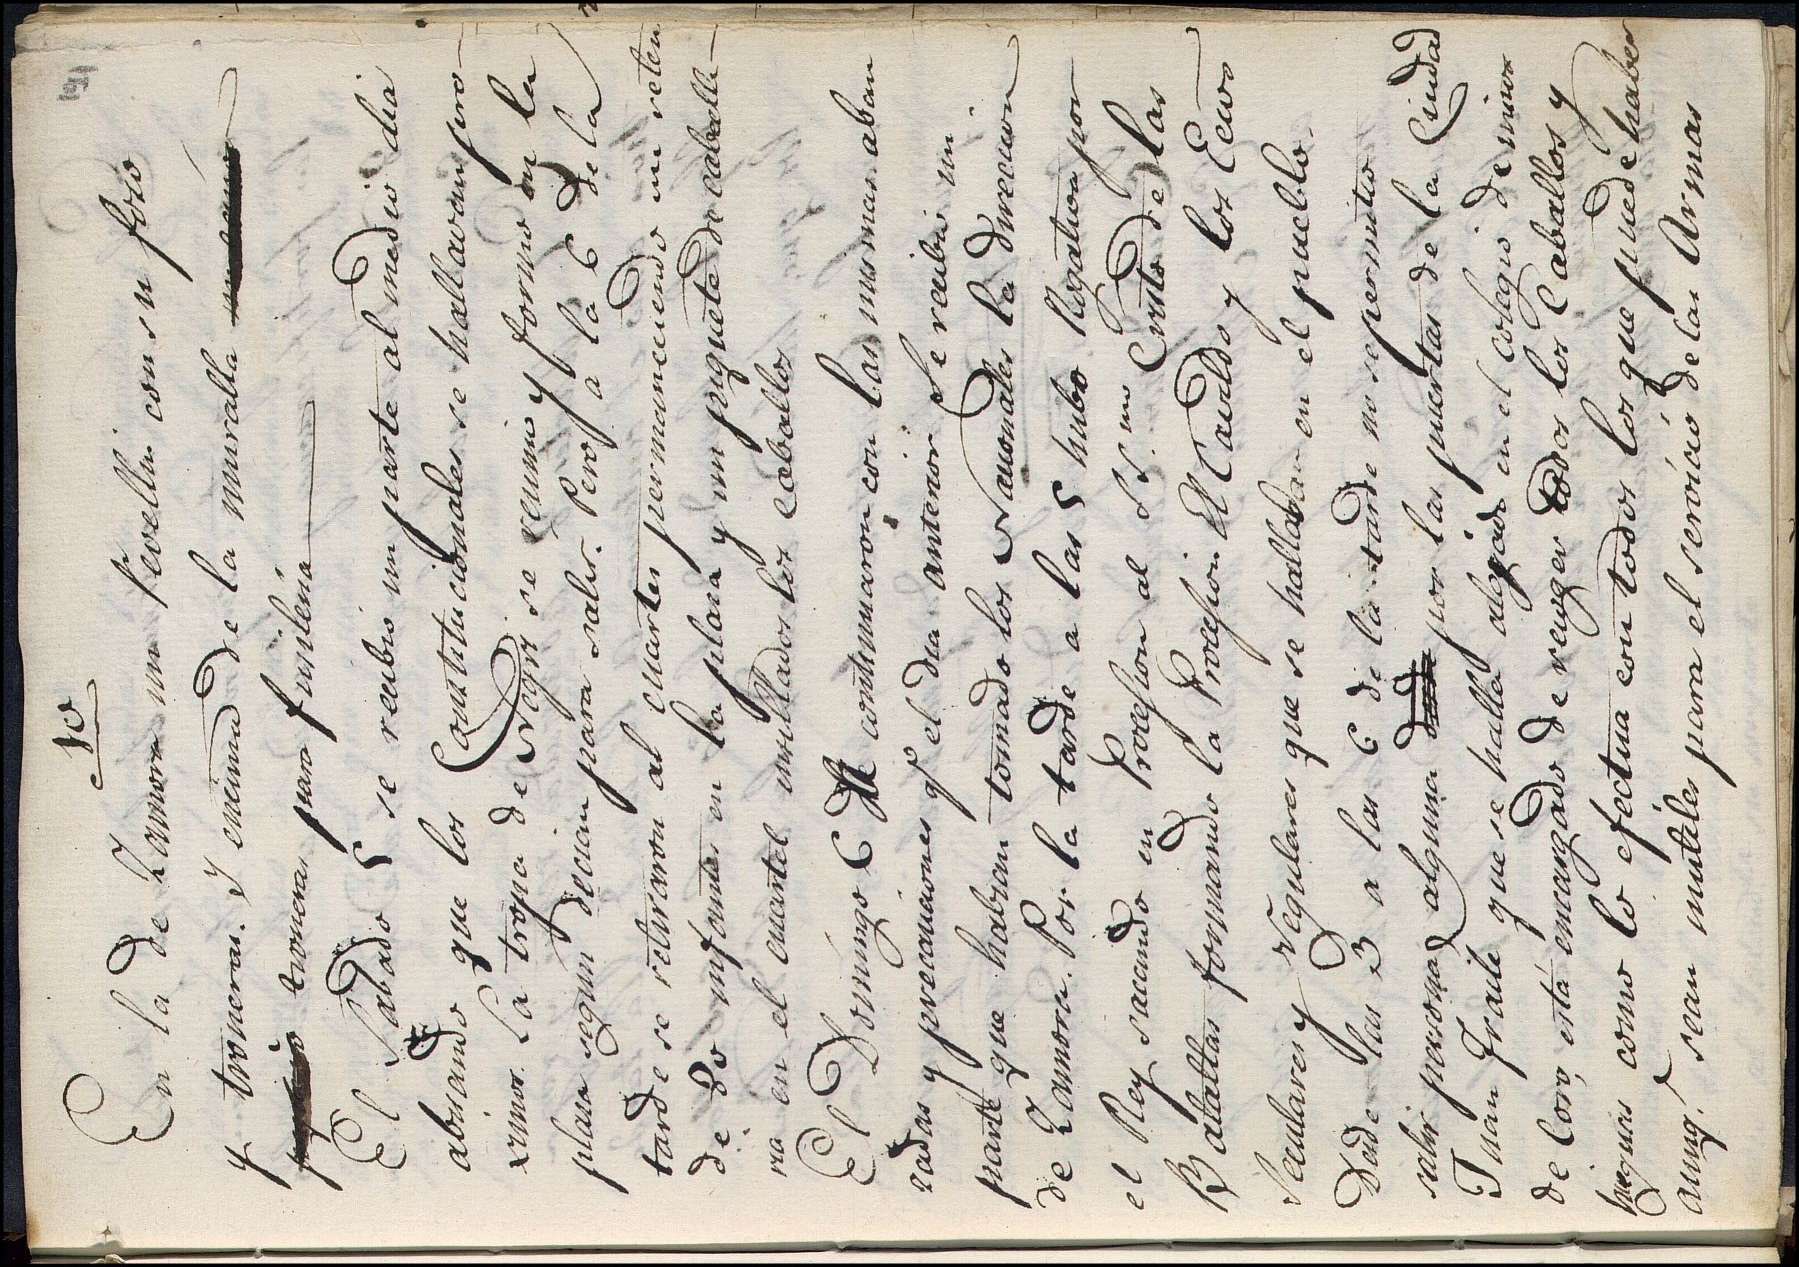 10
En la de Zamora un Revellin con su foso
y troneras. Y encima de la muralla
troneras para fusileria
El Sabado 5 se recibio un parte al medio dia
abisando que los Constitucionales se hallavan pro-
ximos. La tropa de Negri se reunio y formo en la
plaza segun decian para salir. Pero a la 6 de la
tarde se retiraron al cuartel permaneciendo un reten
de 80 infantes en la plaza y un piquete de caballe-
ria en el cuartel ensillados los caballos
El Domingo 6 continuaron con las mismas aban
zadas y precauciones q.e el dia anterior. Se recibio un
parte que habian tomado los Nacionales la direccion
de Zamora. Por la tarde a las 5 hubo Rogativa por
el Rey sacando en Procesion al SS.mo Cristo de las
Batallas formando la Procesion El Cavildo y los Ecos
Seculares y Regulares que se hallaban en el pueblo.
Desde las 3 a las 6 de la tarde no se permitio
salir persona alguna por las puertas de la Ciudad
Juan Fraile que se halla alojado en el colegio de niños
de coro, está encargado de recoger todos los Caballos y
yeguas como lo efectua con todos los que puede haber
aunq.e sean inutiles para el servicio de las Armas